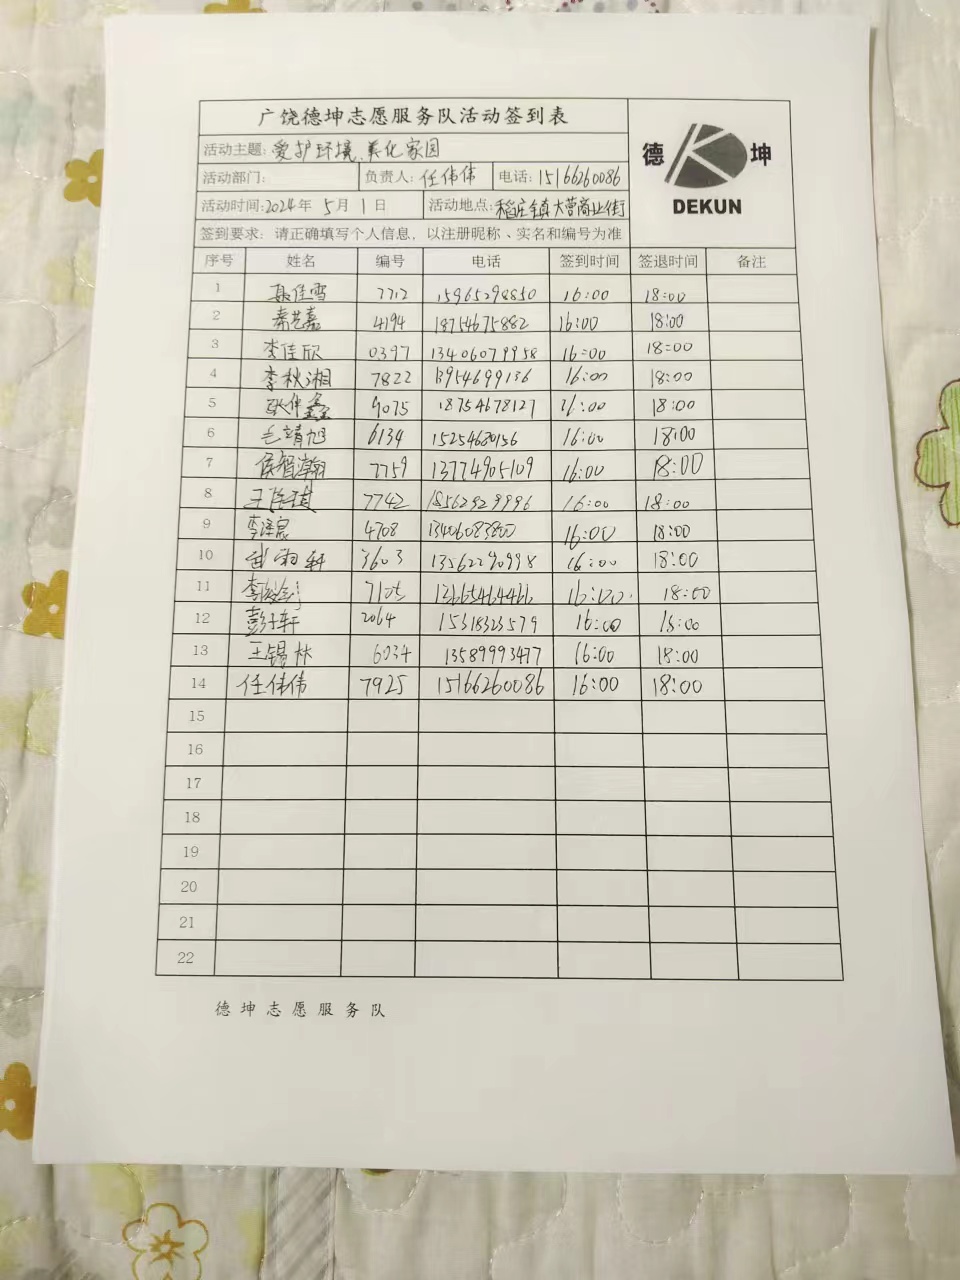 广饶德坤志愿服务队活动签到表
德 坤
DEKUN
活动主题:爱护环境、美化家园
活动部门: 负责人:任伟伟 电话:15166260086
活动时间:2024年 5月 1日 活动地点:稻庄镇大营商业街
签到要求:请正确填写个人信息,以注册昵称、实名和编号为准
序号 姓名 编号 电话 签到时间 签退时间 备注
1 聂佳雪 7712 15965298850 16:00 18:00
2 秦艺嘉 4194 18754675882 16:00 18:00
3 李佳欣 0397 13406079958 16:00 18:00
4 李秋湘 7822 13954699136 16:00 18:00
5 9075 18754678127 16:00 18:00
6 毛靖旭 6134 15254680156 16:00 18:00
7 侯智瀚 7759 13774905109 16:00 18:00
8 7742 18562929996 16:00 18:00
9 4708 13406083800 16:00 18:00
10 3603 13562290998 16:00 18:00
11 7105 13665464466 16:00 18:00
12 彭子轩 2064 15318323579 16:00 18:00
13 王锡林 6034 13589993477 16:00 18:00
14 任伟伟 7925 15166260086 16:00 18:00
15
16
17
18
19
20
21
22
德坤志愿服务队